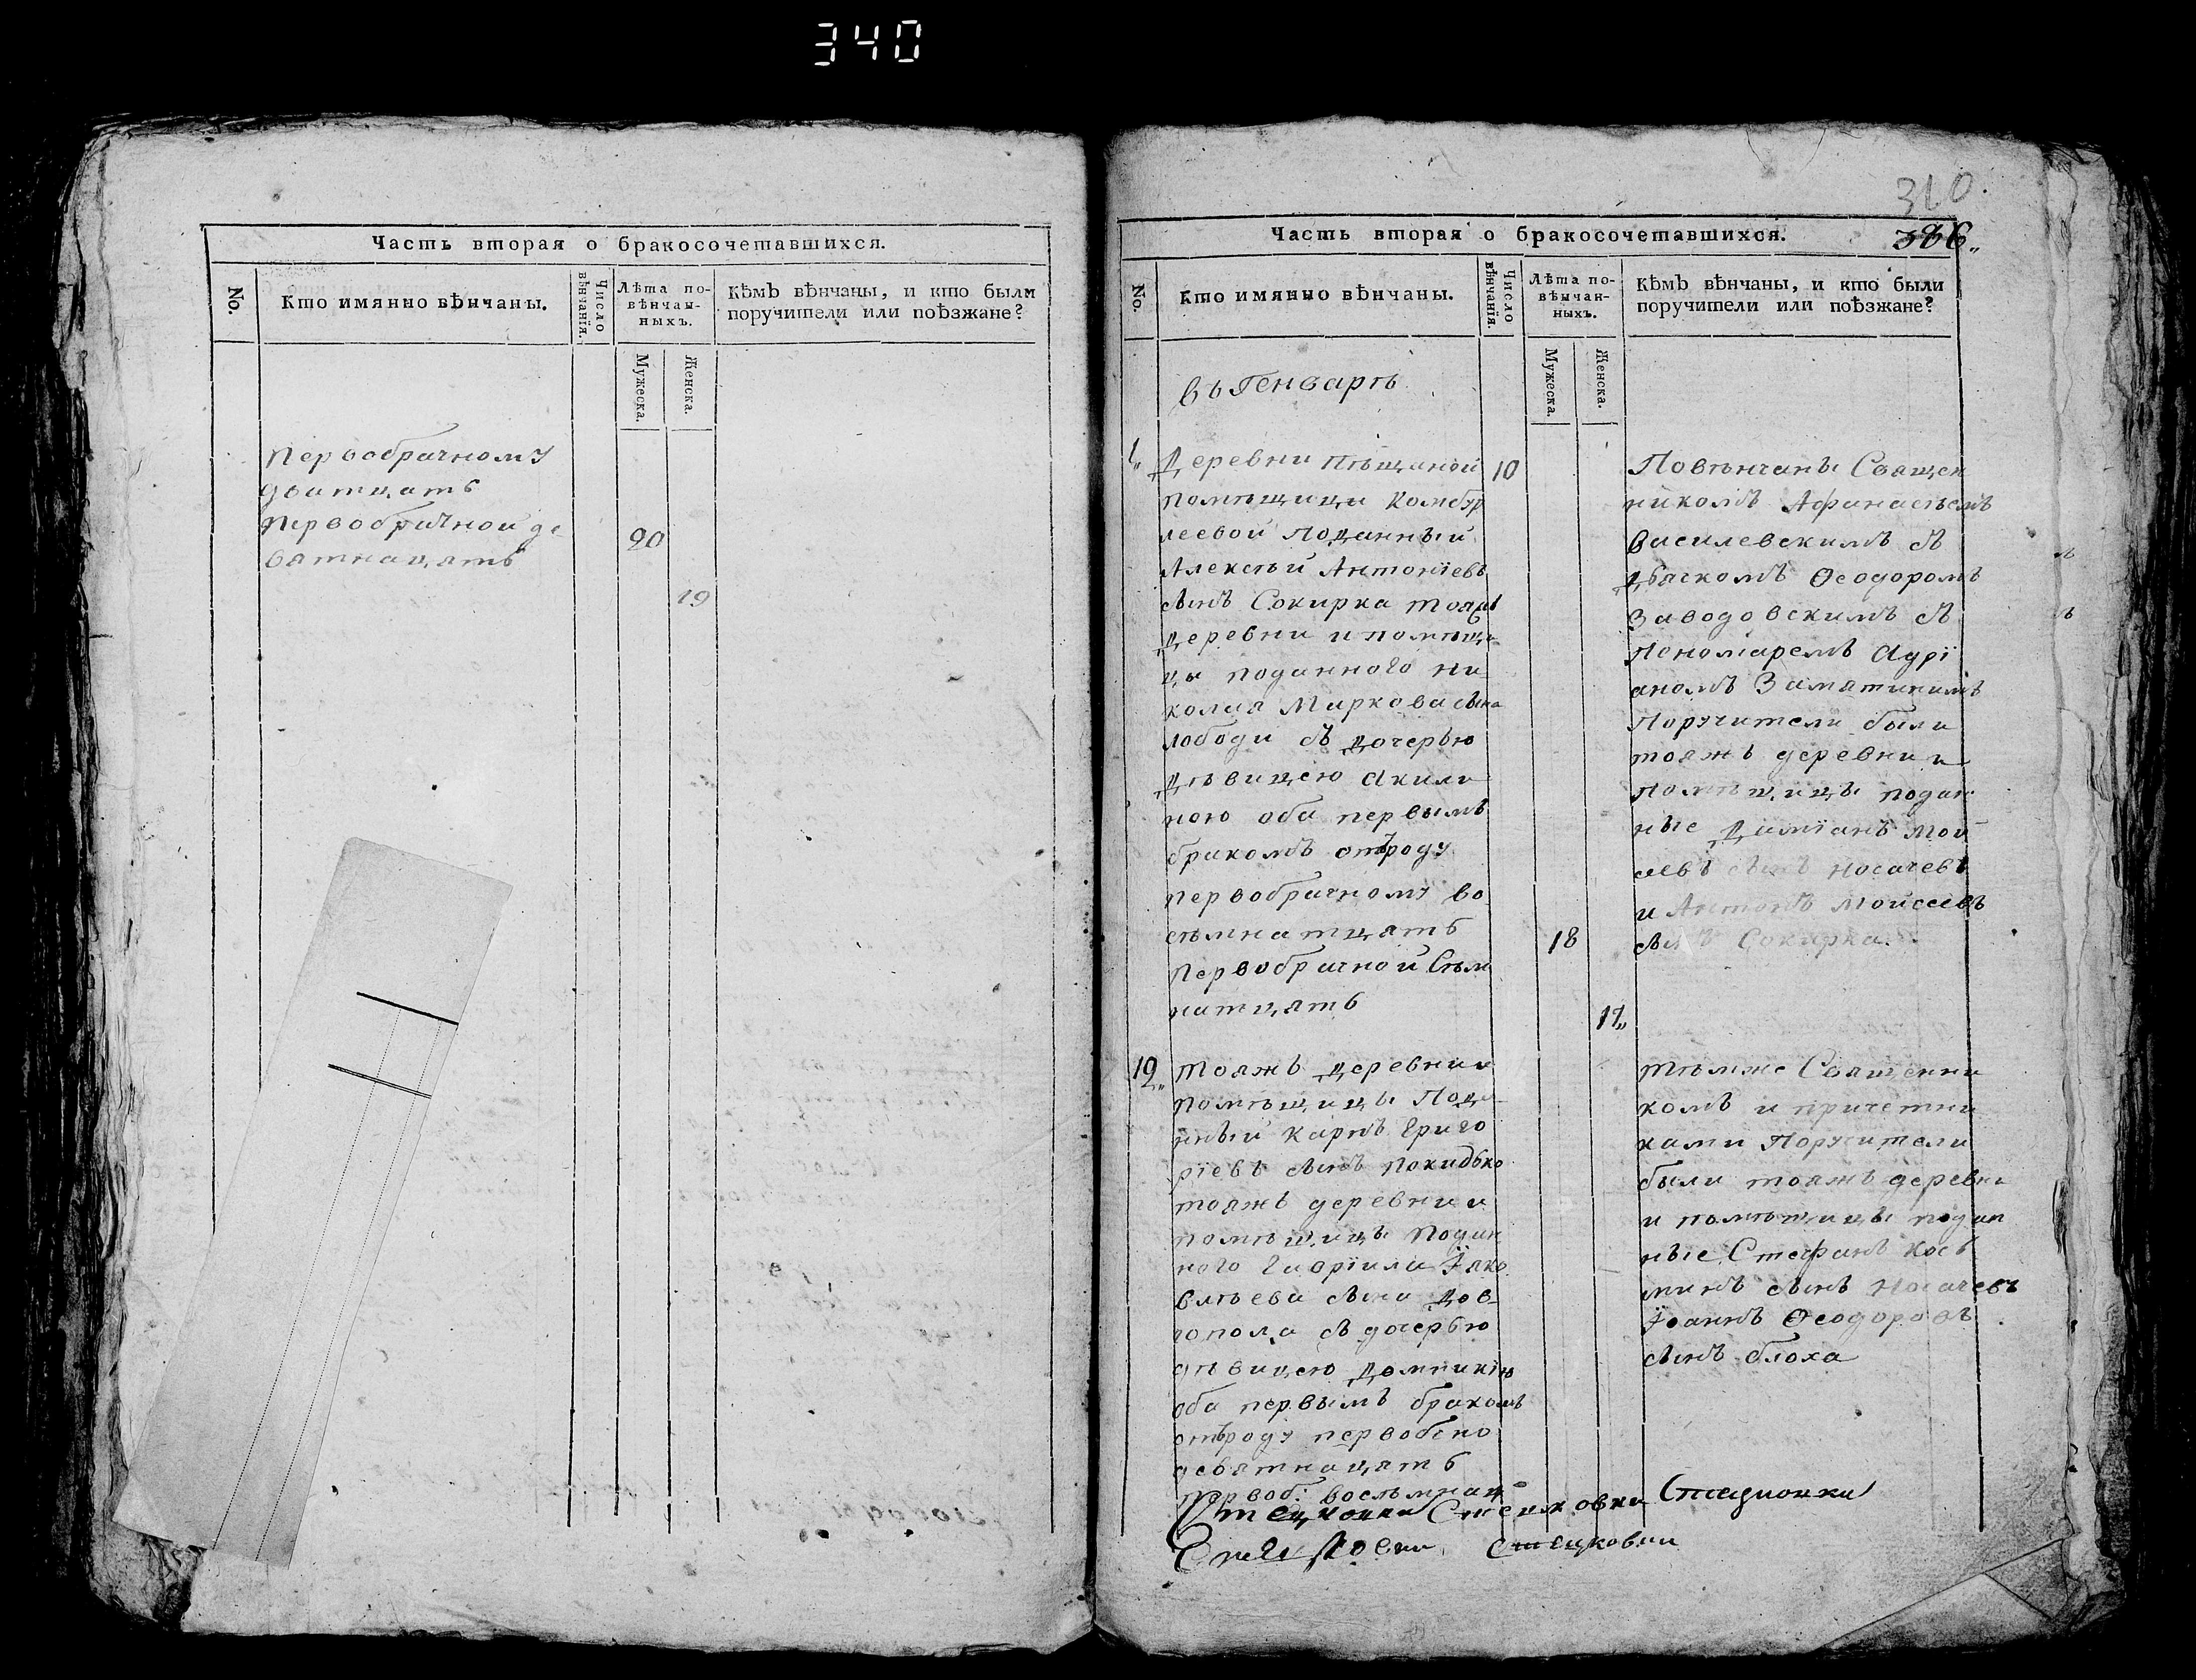 340
Часть вторая о бракосочетавшихся.
No.
Кто имянно вѣнчаны.
Число вѣнчанїя.
Лѣта по-
вѣнчан-
ныхъ.
Кѣмъ вѣнчаны, и кто были
поручители или поѣзжане?
Мужеска.
Женска.
Первобрачному
дватцать
Первобрачной де
вятнацать
20
19
310.
386„
Часть вторая о бракосочетавшихся.
No.
Кто имянно вѣнчаны.
Число вѣнчанїя.
Лѣта по-
вѣнчан-
ныхъ.
Кѣмъ вѣнчаны, и кто были
поручители или поѣзжане?
Мужеска.
Женска.
въ Генварѣ
1„
Деревни Пѣщаной
помѣщици Комбур
леевой Поданный
Алексѣй Антонїевъ
сынъ Сокирка тояжъ
деревни и помѣщи
цы поданного Ни
колая Маркова сына
лободи съ дочерью
дѣвицею Акили
ною оба первымъ
бракомъ отъроду
первобрачному во
сѣмнатцать
Первобрачной Сѣм
натцать
10
18
17„
Повѣнчаны Священ
никомъ Афанасіемъ
василевскимъ съ
дьячкомъ Ѳеодоромъ
Заводовскимъ съ
Пономаремъ Адрї
аномъ Замятинимъ
Поручители были
тояжъ деревни и
Помѣщицы подан
ные Дамїанъ Мой
сеевъ сынъ Носачевъ
и Антонъ Мойсеевъ
сынъ Сокирка.
12„
тояжъ деревни и
помѣщицы Пода
нный Карпъ Григо
рїевъ сынъ Покидько
тояжъ деревни и
помѣщицы Подан
ного Гаврїила Їако
влѣева сына Дов
гопола съ дочерью
дѣвицею Домникїю
оба первымъ бракомъ
отъроду первобено
девятнацать
первоб: восѣмнац
тѣмже Священни
комъ и причетни
ками Поручители
были тояжъ деревни
и помѣщицы подан
ные Стефанъ Кось
минъ сынъ Носачевъ
Їоаннъ Ѳеодоровъ
сынъ блоха